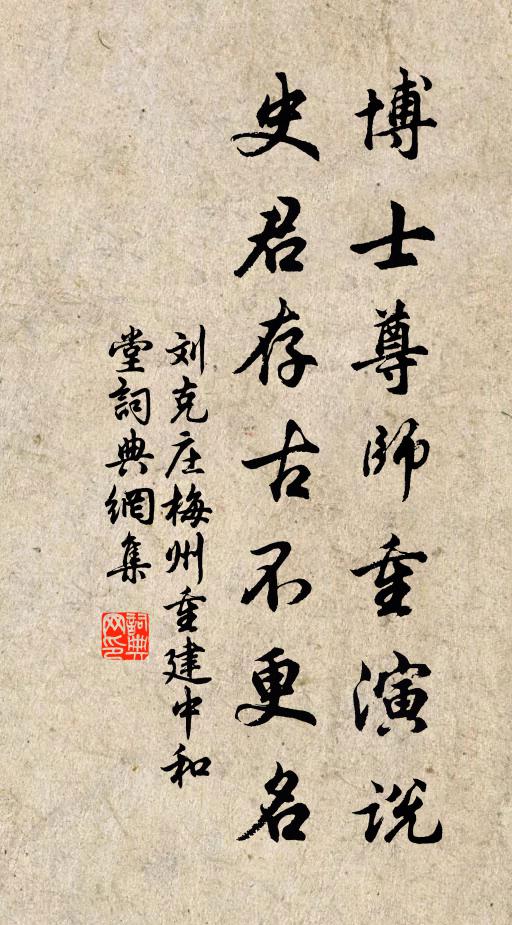 博士尊師重演説
史君存古不更名
刘克庄梅州重建中和
堂詞典網集
詞典
网印